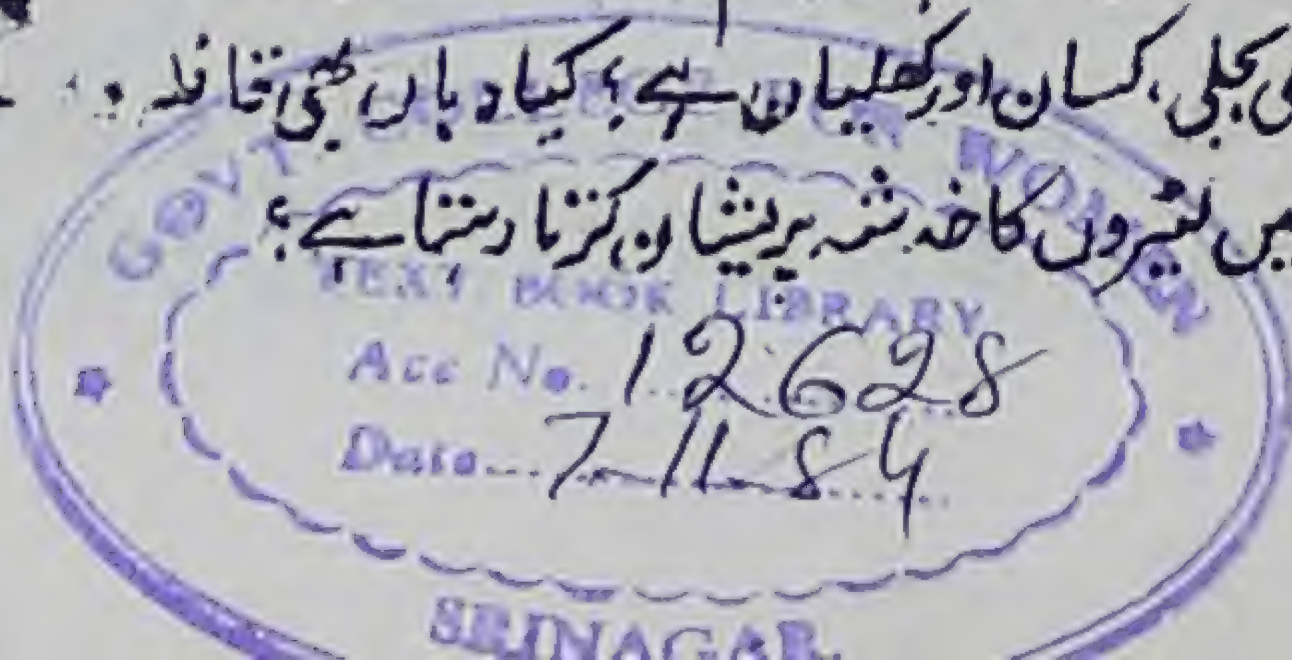 بجلی، کسان اور کھلیان ہے؟ کیا وہاں بھی قافلہ
میں لٹیروں کا خدشہ پریشان کرتا رہتا ہے؟
GOVT WOMEN
TEXT BOOK LIBRARY
Acc No. 12628
Date... 7-11-84
SRINAGAR.